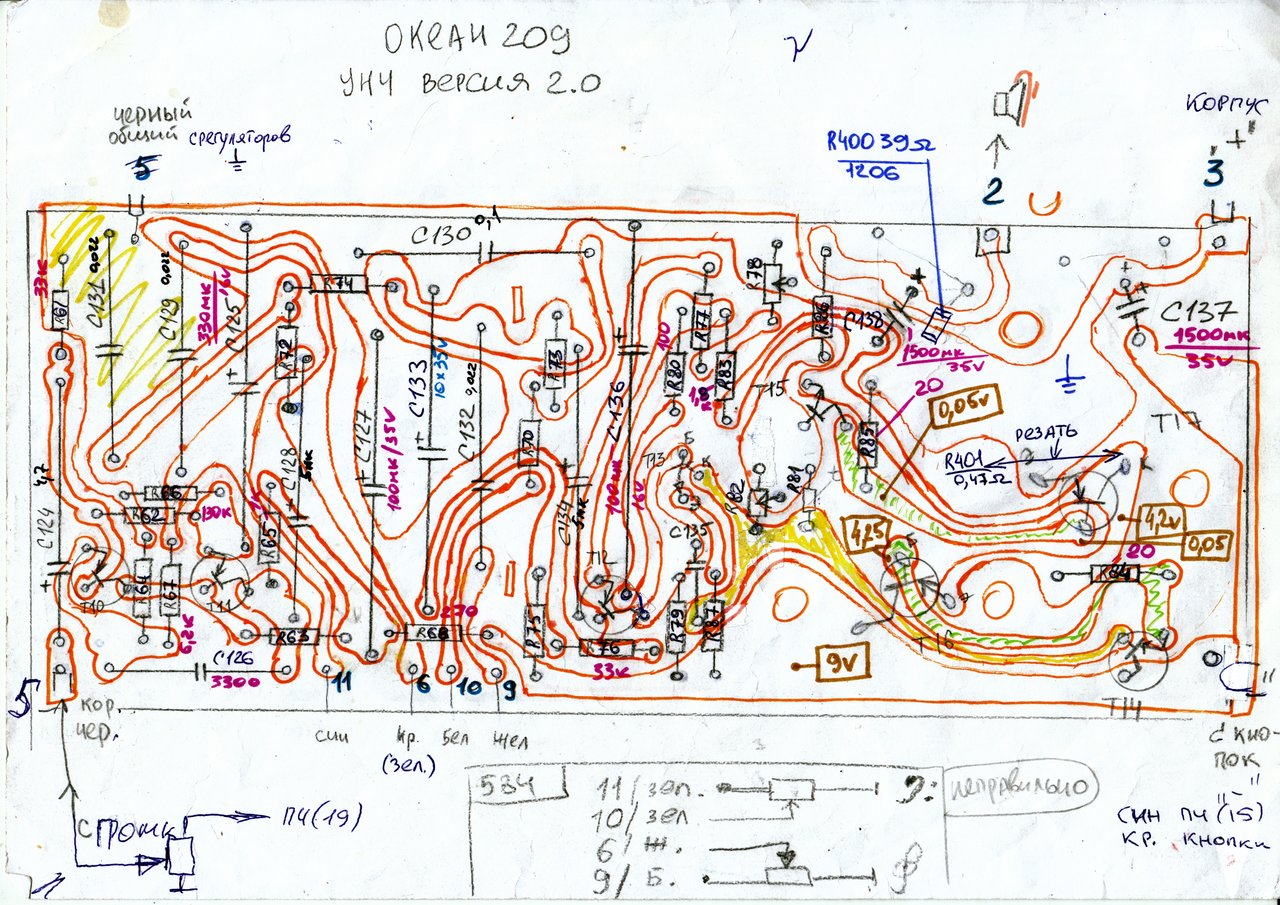 ОКЕАН 209
УНЧ ВЕРСИЯ 2.0
ЧЕРНЫЙ
ОБЩИЙ
С РЕГУЛЯТОРОВ
5
R400 39Ω
1206
2
КОРПУС
"+"
3
33К
R61
C131 0,022
C129 0,022
330МК
16V
C125
R74
C130
0,1
R72
C127
100МК/35V
C133
10x35V
C132 0,022
R73
R70
C136
100МК
16V
100
R80
R77
1,8К
R83
R78
R86
C138
1500МК
35V
C137
1500МК
35V
T15
20
R85
0,05V
РЕЗАТЬ
R401
0,47Ω
T17
4,2V
0,05
4,7
C124
R66
R62
130К
1К
R65
C128
5МК
C134
5МК
T13
Б
К
Э
C135
R82
R81
4,25
Б
20
R84
T10
R64
R67
T11
6,2К
R63
270
R68
R75
T12
R76
33К
R79
R87
9V
T16
T14
C126
3300
11
6
10
9
5
КОР.
ЧЕР.
СИН
КР.
БЕЛ
ЖЕЛ
(ЗЕЛ.)
С КНО-
ПОК
"-"
534
11/ЗЕЛ.
10/ЗЕЛ
6/Ж.
9/Б.
НЕПРАВИЛЬНО
СИН ПЧ (15)
КР. КНОПКИ
С ГРОМК
ПЧ(19)